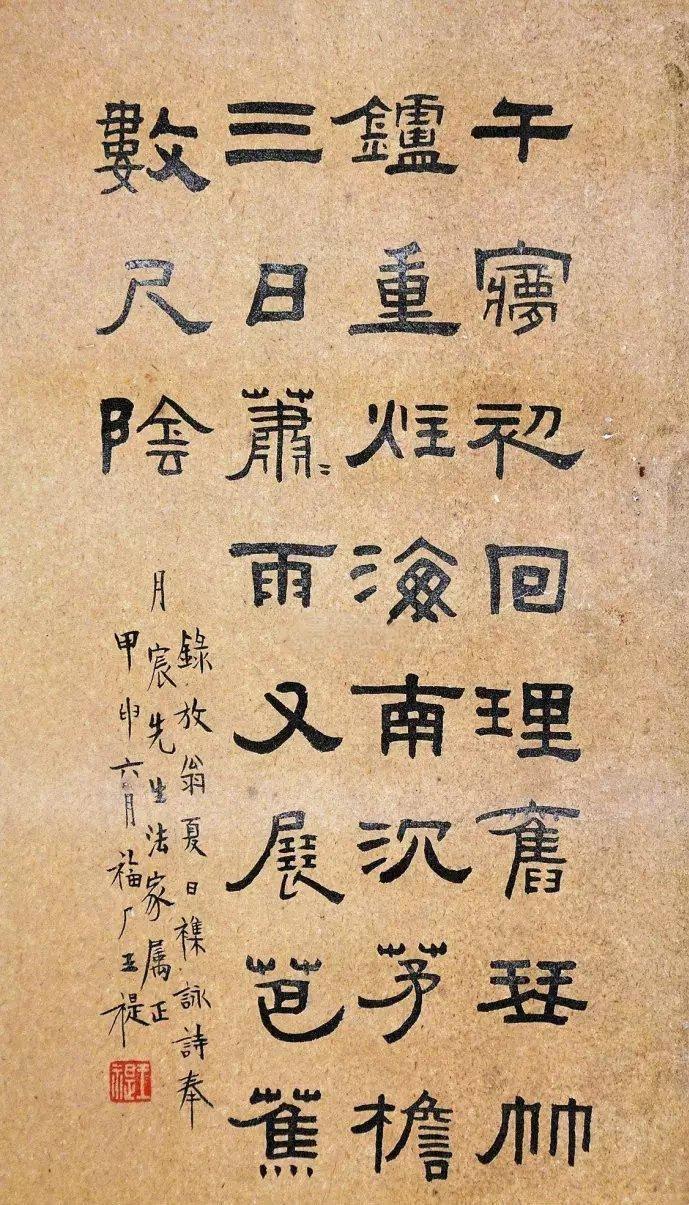 午㝱初回理舊琴竹
鑪重炷海南沉茅檐
三日蕭〻雨又展芭蕉
數尺陰
錄放翁夏日襍詠詩奉
月宸先生法家属正
甲申六月福厂王禔
王禔